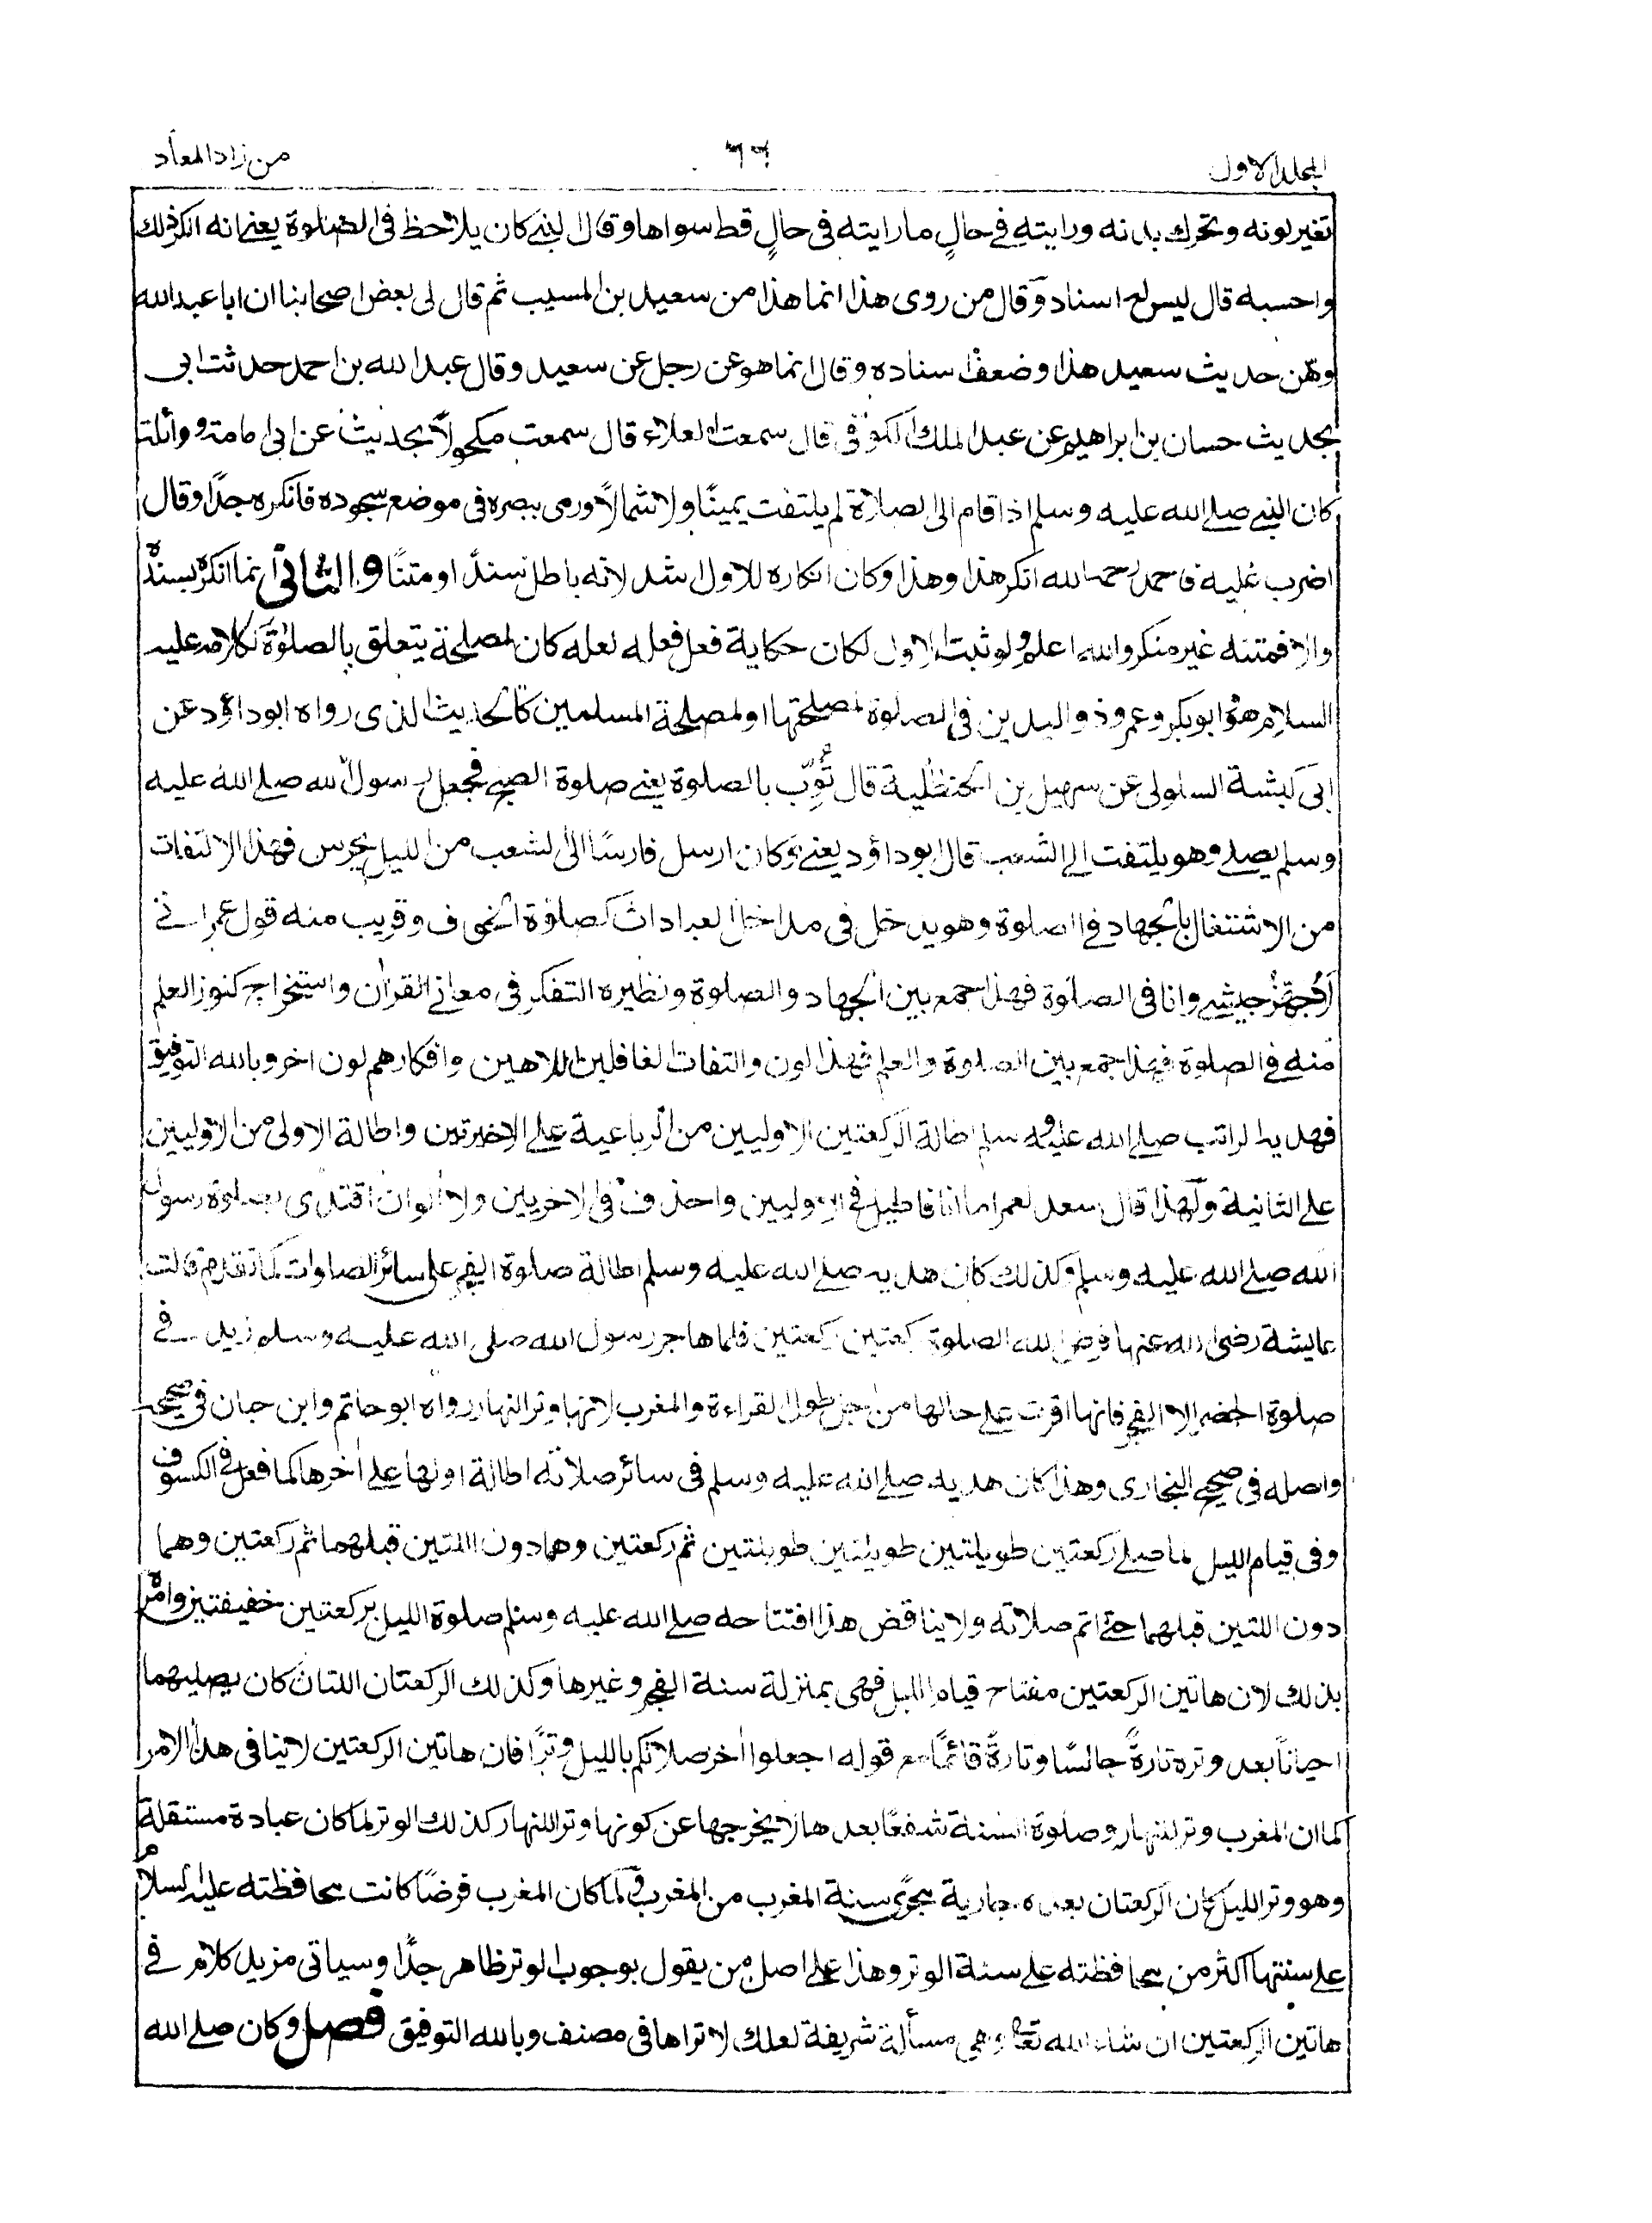 المجلد الاول
٦٦
من زاد المعاد
تغير لونه وتحرك بدنه ورايته في حالٍ ما رايته فى حالٍ قط سواها وقال النبي كان يلاحظ فى الصلوة يعني انه انكر ذلك
واحسبه قال ليس له اسناد وقال من روى هذا انما هذا من سعيد بن المسيب ثم قال لى بعض اصحابنا ان ابا عبد الله
وهّن حديث سعيد هذا وضعف اسناده وقال انما هو عن رجل عن سعيد وقال عبد الله بن احمد حدثت ابى
بحديث حسان بن ابراهيم عن عبد الملك الكوفى قال سمعت العلاء قال سمعت مكحولاً يحديث عن ابى امامة وواثلة
كان النبي صلے الله عليه وسلم اذا قام الى الصلاة لم يلتفت يمينًا ولا شمالًا ورمى ببصره فى موضع سجوده فانكره جدًا وقال
اضرب عليه فاحمد رحمه الله انكر هذا وهذا وكان انكاره للاول اشد لانه باطل سندًا ومتنًا والثانى انما انكره بسنده
والا فمتنه غير منكر والله اعلم ولو ثبت الاول لكان حكاية فعل فعله لعله كان لمصلحة يتعلق بالصلوة ككلامه عليه
السلام هو وابو بكر وعمر وذو اليدين في الصلوة لمصلحتها او لمصلحة المسلمين كالحديث الذى رواه ابو داؤد عن
ابى كبشة السلولى عن سهيل بن الحنظلية قال ثُوِّب بالصلوة يعني صلوة الصبح فجعل رسول الله صلے الله عليه
وسلم يصلے وهو يلتفت الى الشعب قال ابو داؤد يعني وكان ارسل فارسًا الى الشعب من الليل يحرس فهذا الالتفات
من الاشتغال بالجهاد في الصلوة وهو يدخل فى مداخل العبادات كصلوة الخوف وقريب منه قول عمر اني
لاُجهّز جيشي وانا فى الصلوة فهذا جمع بين الجهاد والصلوة ونظيره التفكر فى معانى القرآن واستخراج كنوز العلم
منه في الصلوة فهذا جمع بين الصلوة والعلم فهذا لون والتفات الغافلين اللاهين وافكارهم لون اخر وبالله التوفيق
فهديه الراتب صلے الله عليه وسلم اطالة الركعتين الاوليين من الرباعية على الاخيرتين واطالة الاولى من الاوليين
على الثانية ولهذا قال سعد لعمر اما انا فاطيل في الاوليين واحذف في الاخريين ولا آلو ان اقتدى بصلوة رسول
الله صلے الله عليه وسلم وكذلك كان هديه صلے الله عليه وسلم اطالة صلوة الفجر على سائر الصلوات كما تقدم قالت
عايشة رضى الله عنها فرض الله الصلوة ركعتين ركعتين فلما هاجر رسول الله صلى الله عليه وسلم زيد في
صلوة الحضر الا الفجر فانها اقرت على حالها من اجل طول القراءة والمغرب لانها وتر النهار رواه ابو حاتم وابن حبان فى صحيحه
واصله فى صحيح البخارى وهذا كان هديه صلے الله عليه وسلم فى سائر صلاته اطالة اولها على اخرها كما فعل في الكسوف
وفى قيام الليل لما صلے ركعتين طويلتين طويلتين طويلتين ثم ركعتين وهما دون اللتين قبلهما ثم ركعتين وهما
دون اللتين قبلهما حتى اتم صلاته ولا يناقض هذا افتتاحه صلے الله عليه وسلم صلوة الليل بركعتين خفيفتين وامره
بذلك لان هاتين الركعتين مفتاح قيام الليل فهى بمنزلة سنة الفجر وغيرها وكذلك الركعتان اللتان كان يصليهما
احيانًا بعد وتره تارةً جالسًا وتارةً قائمًا مع قوله اجعلوا اخر صلاتكم بالليل وترًا فان هاتين الركعتين لاتنافى هذا الامر
كما ان المغرب وتر للنهار وصلوة السنة شفعًا بعدها لا يخرجها عن كونها وترا للنهار كذلك الوتر لما كان عبادة مستقلة
وهو وتر الليل كان الركعتان بعده جارية مجرى سنة المغرب من المغرب ولما كان المغرب فرضًا كانت محافظته عليه السلام
على سنتها اكثر من محافظته على سنة الوتر وهذا على اصل من يقول بوجوب الوتر ظاهر جدًا وسياتى مزيد كلام في
هاتين الركعتين ان شاء الله تعالى وهى مسألة شريفة لعلك لا تراها فى مصنف وبالله التوفيق فصل وكان صلے الله